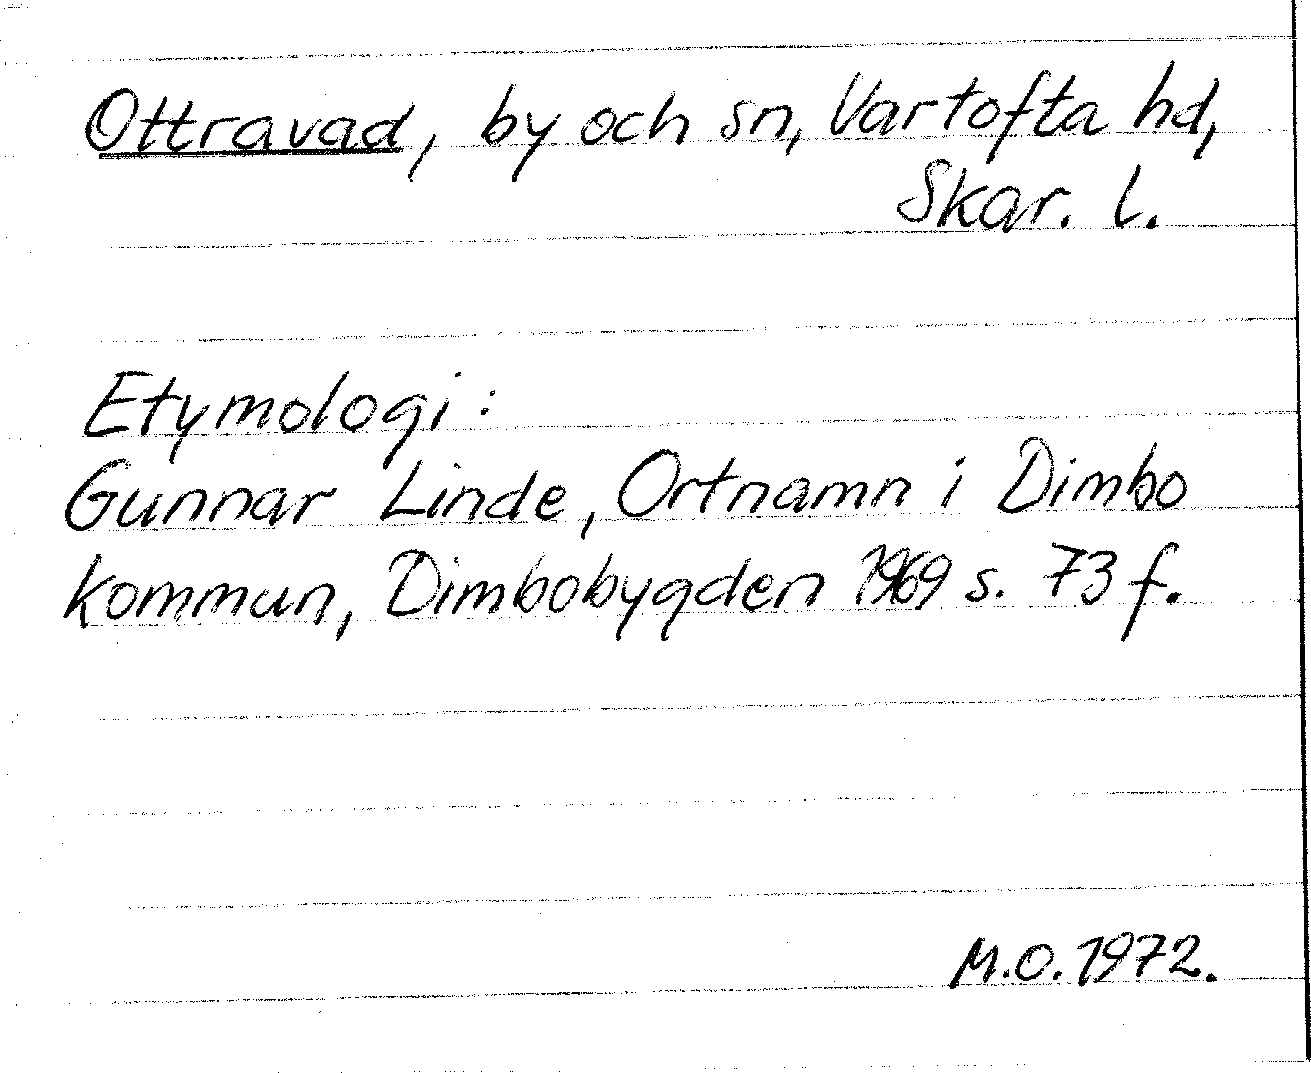 Ottravad, by och sn, Vartofta hd,
Skar. l.
Etymologi:
Gunnar Linde, Ortnamn i Dimbo
kommun, Dimbobygden 1969 s. 73 f.
M.O. 1972.